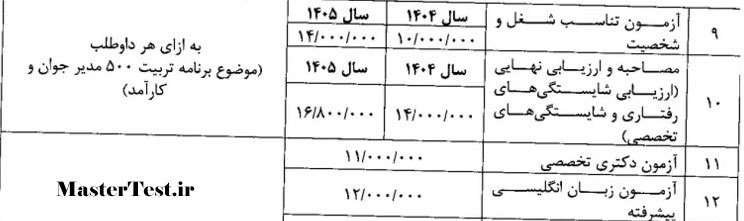 ۹
آزمون تناسب شغل و
شخصیت
سال ۱۴۰۴
سال ۱۴۰۵
۱۰/۰۰۰/۰۰۰
۱۴/۰۰۰/۰۰۰
به ازای هر داوطلب
(موضوع برنامه تربیت ۵۰۰ مدیر جوان و
کارآمد)
۱۰
مصاحبه و ارزیابی نهایی
(ارزیابی شایستگی‌های
رفتاری و شایستگی‌های
تخصصی)
سال ۱۴۰۴
سال ۱۴۰۵
۱۴/۰۰۰/۰۰۰
۱۶/۸۰۰/۰۰۰
۱۱
آزمون دکتری تخصصی
۱۱/۰۰۰/۰۰۰
۱۲
آزمون زبان انگلیسی
پیشرفته
۱۲/۰۰۰/۰۰۰
MasterTest.ir